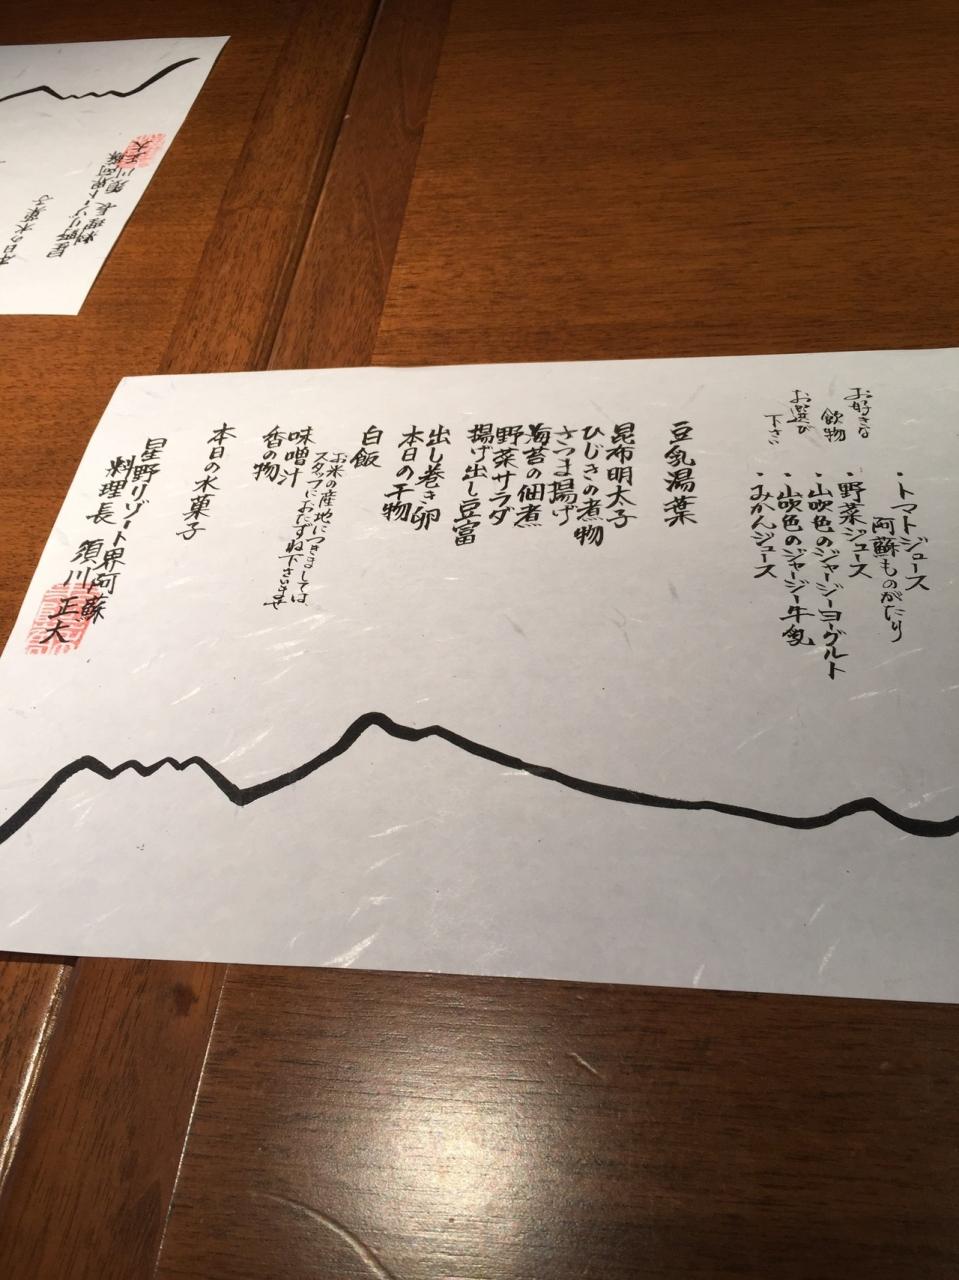 お好きな
飲物
お選び
下さい
・トマトジュース
阿蘇ものがたり
・野菜ジュース
・山吹色のジャージーヨーグルト
・山吹色のジャージー牛乳
・みかんジュース
豆乳湯葉
昆布明太子
ひじきの煮物
さつま揚げ
海苔の佃煮
野菜サラダ
揚げ出し豆富
出し巻き卵
本日の干物
白飯
お米の産地につきましては、
スタッフにおたずね下さいませ
味噌汁
香の物
本日の水菓子
星野リゾート界阿蘇
料理長 須川正大
本日の水菓子
星野リゾート界阿蘇
料理長 須川正大